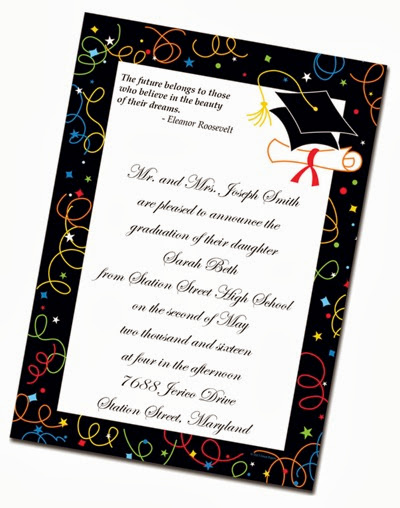 The future belongs to those
who believe in the beauty
of their dreams.
- Eleanor Roosevelt
Mr. and Mrs. Joseph Smith
are pleased to announce the
graduation of their daughter
Sarah Beth
from Station Street High School
on the second of May
two thousand and sixteen
at four in the afternoon
7688 Jerico Drive
Station Street, Maryland